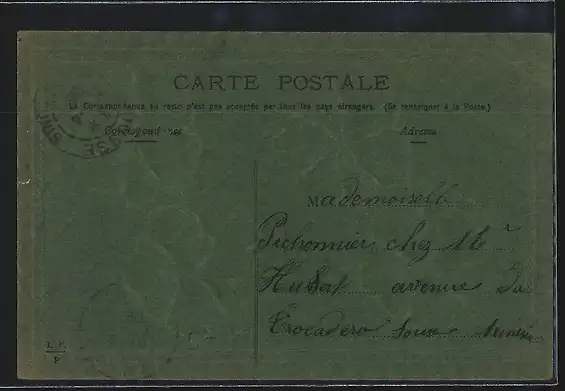 CARTE POSTALE
La Correspondance au recto n'est pas acceptée par tous les pays étrangers. (Se renseigner à la Poste.)
Correspondance
Adresse
Mademoiselle
Pichonnier chez Mr
Hubat avenue du
Trocadero Sousse Tunisie